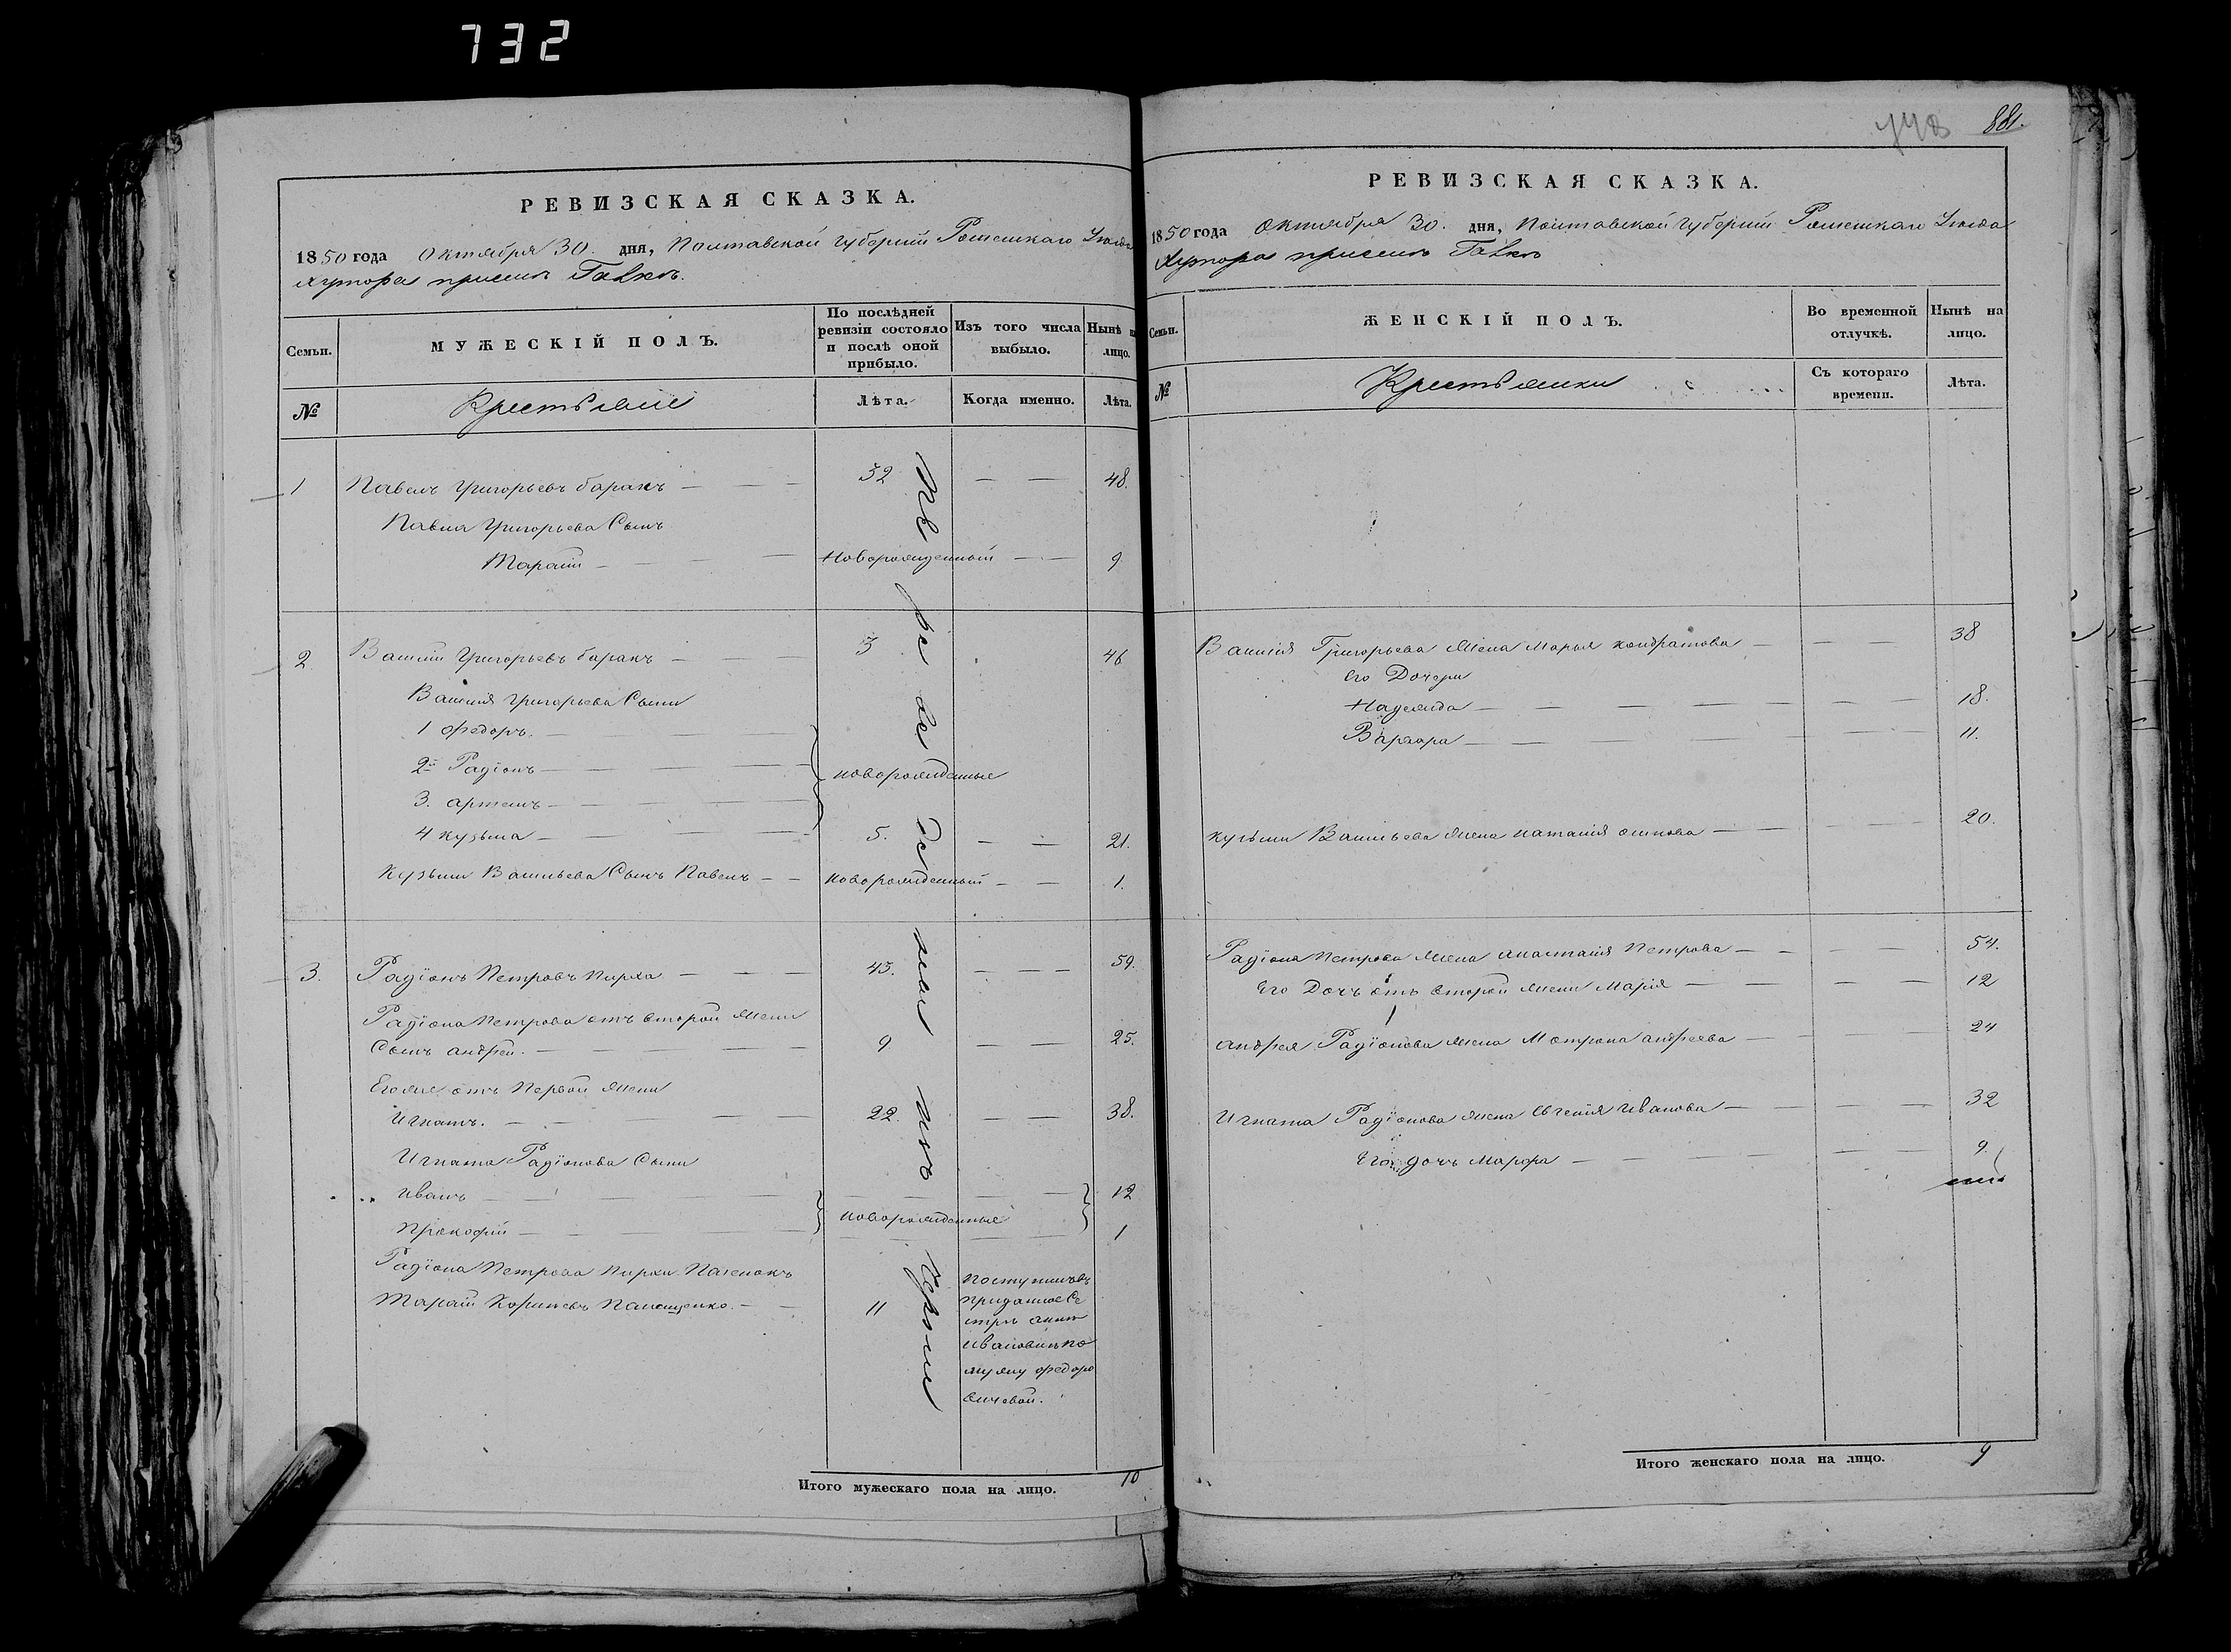 732
РЕВИЗСКАЯ СКАЗКА.
1850 года Октября 30. дня, Полтавской Губернии Роменскаго Уезда
Хутора при селе
Семьи.
МУЖЕСКІЙ ПОЛЪ.
По послѣдней ревизіи состояло и послѣ оной прибыло.
Изъ того числа выбыло.
Нынѣ на лицо.
№
Крестьяне
Лѣта.
Когда именно.
Лѣта.
1 Павелъ Григорьевъ Баранъ — — — 32 — — 48.
Павла Григорьева Сынъ
Тарасій — — — Новорожденный — — 9
2. Василій Григорьевъ Баранъ — — — 3 46
Василія Григорьева Сыни
1 Федоръ. —
2й Радіонъ — — — новорожденные
3. Артемъ — — —
4 Кузьма — — — 5. — — 21.
Кузьми Васильева Сынъ Павелъ — — новорожденный — — 1.
3. Радіонъ Петровъ Пирха — — — 43. — — — 59.
Радіона Петрова отъ второй Жени
Сынъ Андрей. — — — 9 — — 25.
Егоже отъ Первой Жени
Игнатъ. — — — 22. — — 38.
Игната Радіонова Сыни
Иванъ — — — 12
новорожденные
Прокофій — — — 1
Радіона Петрова Пирхи Пасенокъ
Тарасій 11
Поступилъ въ
приданное Се
стре Анне
Ивановне по
мужу Федоро
вичевой.
Итого мужескаго пола на лицо. 10
748 881.
РЕВИЗСКАЯ СКАЗКА.
1850 года Октября 30. дня, Полтавской Губернии Роменскаго Уезда
Хутора при селе
Семьи.
ЖЕНСКІЙ ПОЛЪ.
Во временной отлучкѣ.
Нынѣ на лицо.
№
Крестьянки
Съ котораго времени.
Лѣта.
Василія Григорьева Жена Марья Кондратова — — — 38
Его Дочери
Надежда — — — 18.
Варвара — — — 11.
Кузьми Васильева Жена Наталія Осипова — — — 20.
Радіона Петрова Жена Анастасія Петрова — — — 54.
Его Дочъ отъ второй Жени Марія — — — 12
Андрея Радіонова Жена Мотрона Андреева — — — 24
Игната Радіонова Жена Евгенія Иванова — — — 32
Его дочъ Марфа — — — 9.
Итого женскаго пола на лицо. 9